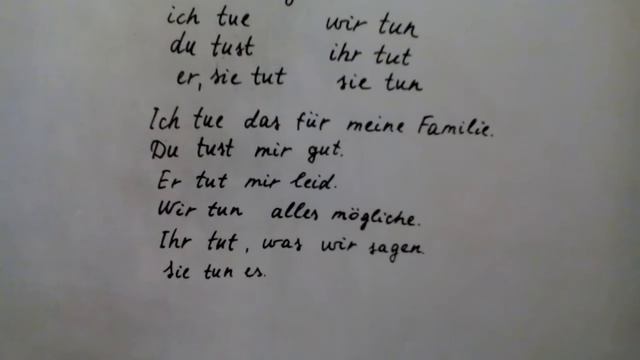 ich tue wir tun
du tust ihr tut
er, sie tut sie tun
Ich tue das für meine Familie.
Du tust mir gut.
Er tut mir leid.
Wir tun alles mögliche.
Ihr tut, was wir sagen.
sie tun es.